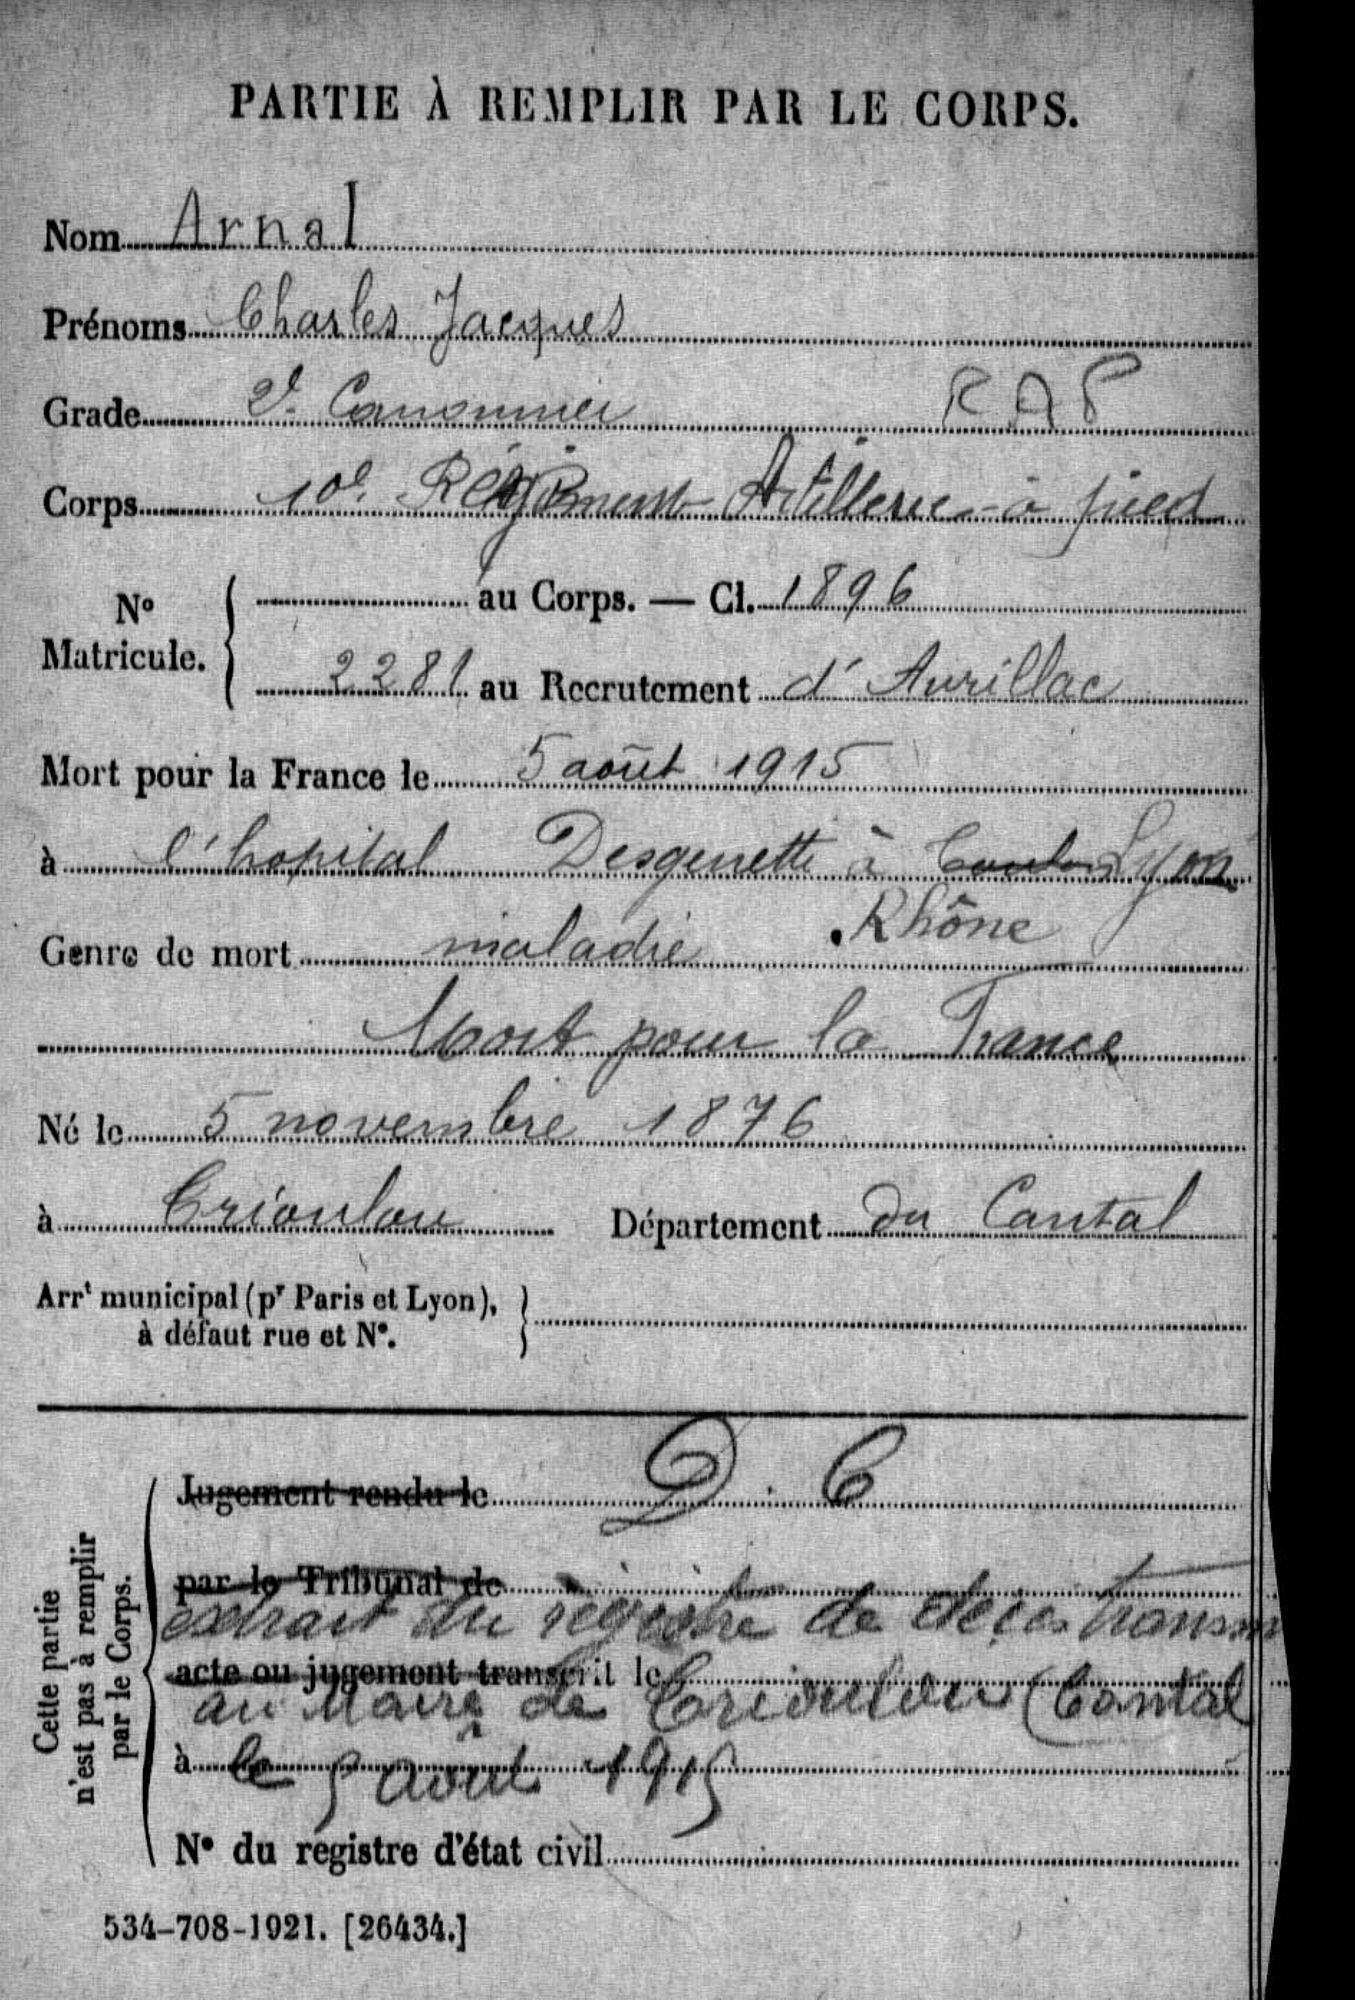 PARTIE À REMPLIR PAR LE CORPS.
Nom Arnal
Prénoms Charles Jacques
Grade 2e Canonnier R A P
Corps 10e Régiment Artillerie à pied
N° Matricule. au Corps. — Cl. 1896
2281 au Recrutement d'Aurillac
Mort pour la France le 5 août 1915
à l'hopital Desgenette à Lyon
Rhône
Genre de mort maladie
Mort pour la France
Né le 5 novembre 1876
à Crioulou Département du Cantal
Arrt municipal (pr Paris et Lyon),
à défaut rue et N°.
Cette partie
n'est pas à remplir
par le Corps.
Jugement rendu le D. C
par le Tribunal de
extrait du registre de décès transm
acte ou jugement transcrit le
au Maire de Crioulou (Cantal
à le 5 août 1915
N° du registre d'état civil
534-708-1921. [26434.]